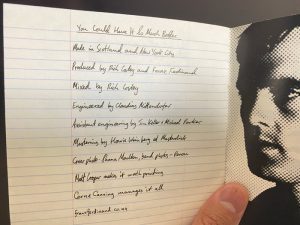 You Could Have It So Much Better
Made in Scotland and New York City
Produced by Rich Costey and Franz Ferdinand
Mixed by Rich Costey
Engineered by Claudius Mittendorfer
Assistant engineering by
Mastering by Howie Weinberg at Masterdisk
Cover photo - band photos -
Matt Cooper makes it worth printing
Cerne Canning manages it all
franzferdinand.co.uk